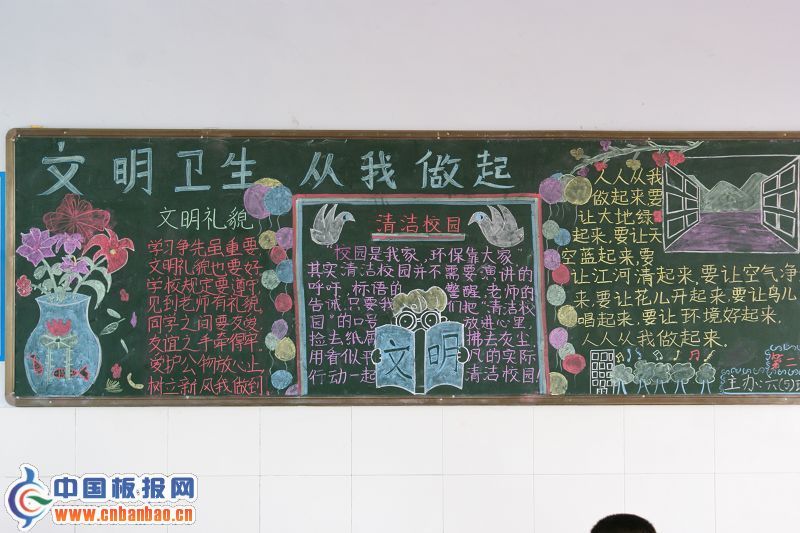 文明卫生 从我做起
文明礼貌
学习争先虽重要
文明礼貌也要好
学校规定要遵守
见到老师有礼貌
同学之间要友爱
友谊之手牵得牢
爱护公物放心上
树立新风我做到
清洁校园
“校园是我家，环保靠大家”
其实清洁校园并不需要演讲的
呼吁，标语的 警醒，老师的
告诫，只要我 们把“清洁校
园”的口号 放进心里，
捡去纸屑 拂去灰尘
用看似平 凡的实际
行动一起 清洁校园！
文明
人人从我
做起来，要
让大地绿
起来，要让天
空蓝起来，要
让江河清起来，要让空气净
来，要让花儿开起来，要让鸟儿
唱起来，要让环境好起来，
人人从我做起来。
第二
主办：六（5）
中国板报网
www.cnbanbao.cn